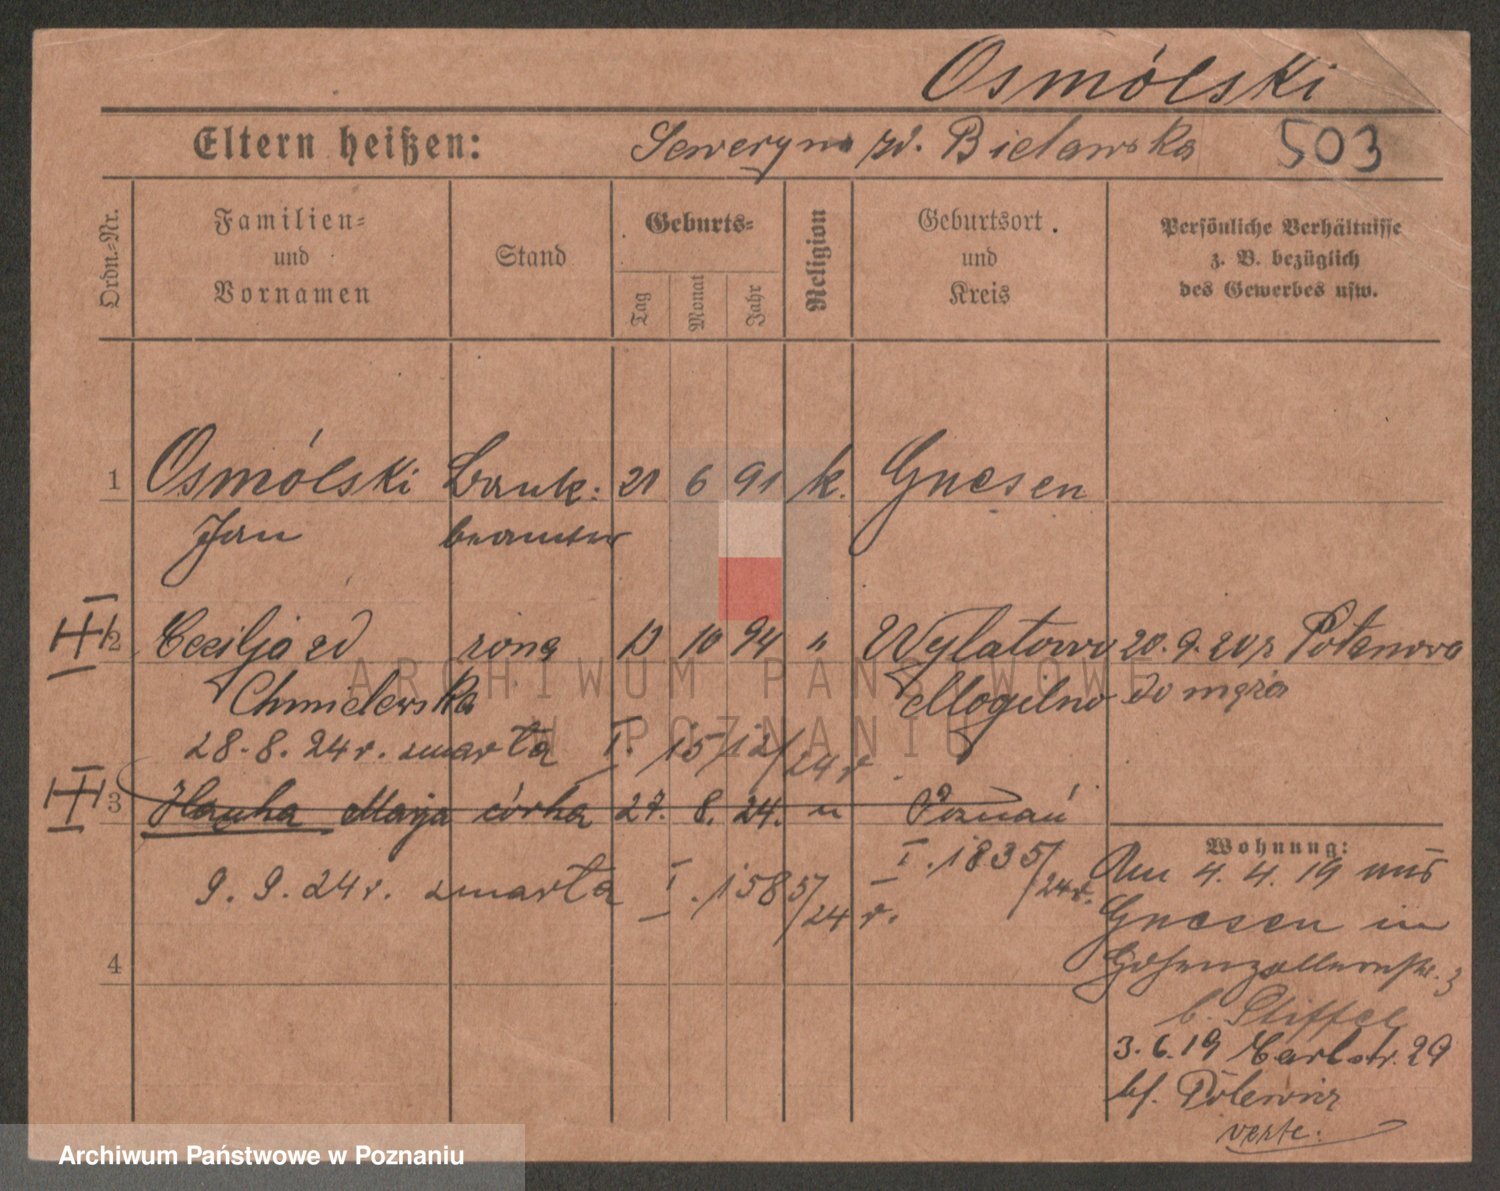 Osmólski
Eltern heißen: Seweryna zd. Bielawska 503
Ordn.-Nr.
Familien-
und
Vornamen
Stand
Geburts-
Tag
Monat
Jahr
Religion
Geburtsort
und
Kreis
Persönliche Verhältnisse
z. B. bezüglich
des Gewerbes usw.
1 Osmólski Bank- 21 6 91 k. Gnesen
Jan beamter
2 Cecilja zd żona 13 10 94 " Wylatowo 20.9.20 z Potanowo
Chmielewska Mogilno do męża
28.8.24 r. zmarła I. 1512/24 r.
3 Hanka Marja córka 27. 8. 24. " Poznań
I. 1835/24 r.
9. 9. 24 r. zmarła I. 1585/24 r.
4
Wohnung:
Am 4.4.19 aus
Gnesen in
Hohenzollernstr. 3
b. Stiffel
3.6.19 Carlstr. 29
bf.
verte.
ARCHIWUM PAŃSTWOWE
W POZNANIU
Archiwum Państwowe w Poznaniu